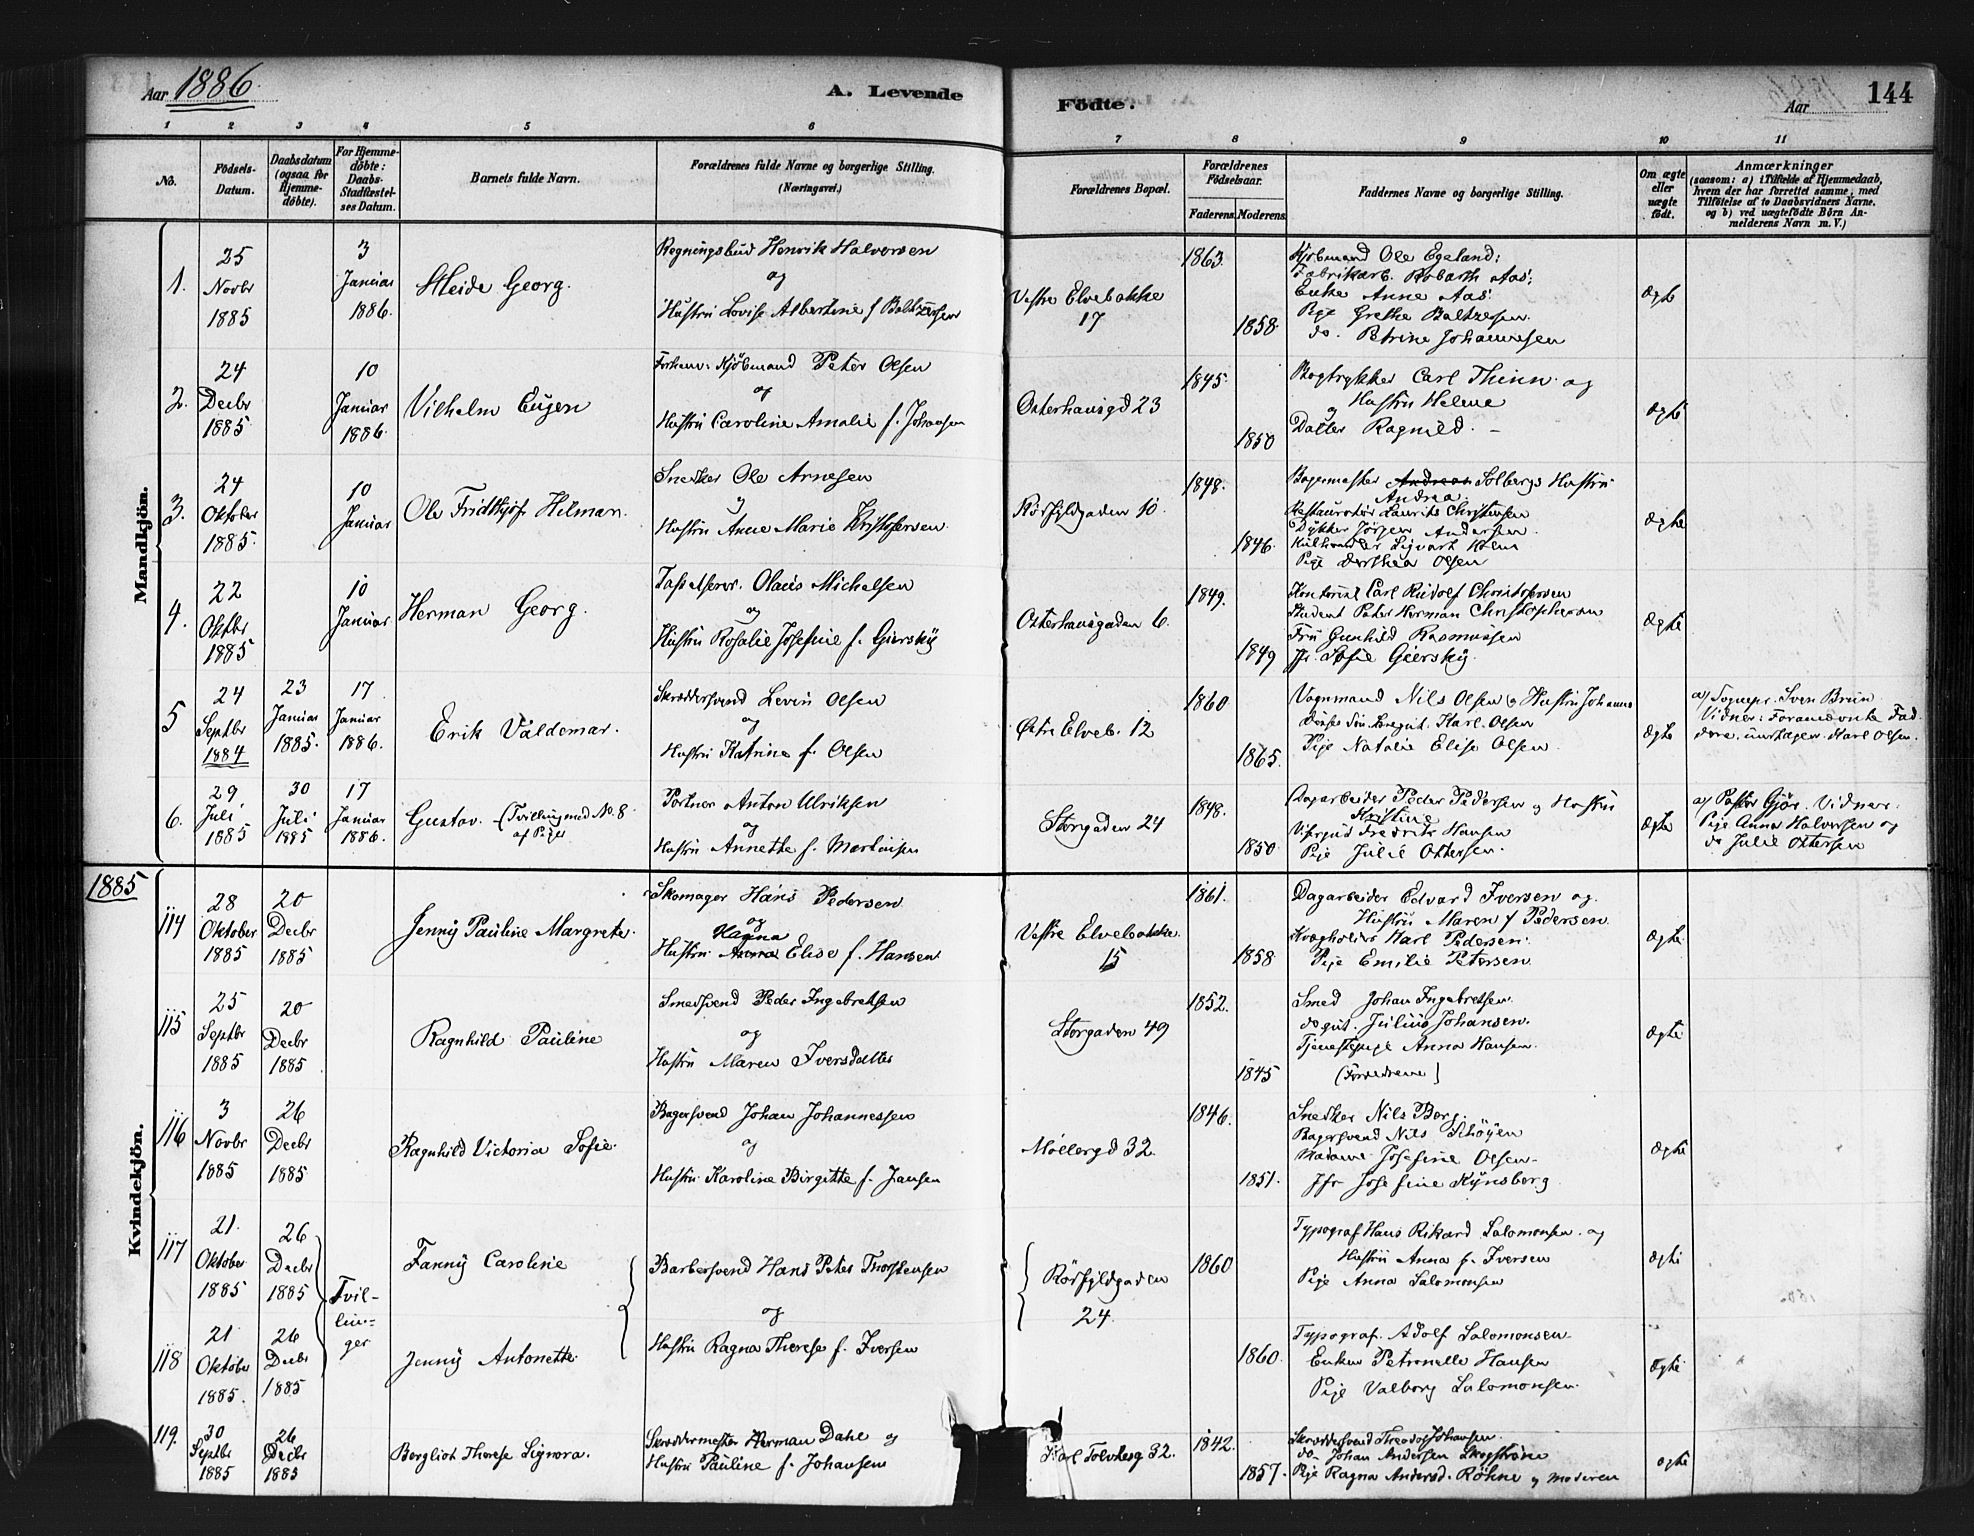 Aar 1886.
A. Levende
Födte.
Aar
144
1
2
3
4
5
6
7
8
9
10
11
No.
Födsels-
Datum.
Daabsdatum
(ogsaa for
Hjemme-
döbte).
For Hjemme-
döbte:
Daabs-
Stadfæstel-
ses Datum.
Barnets fulde Navn.
Forældrenes fulde Navne og borgerlige Stilling.
(Næringsvei.)
Forældrenes Bopæl.
Forældrenes
Födselsaar.
Faderens.
Moderens.
Faddernes Navne og borgerlige Stilling.
Om ægte
eller
uægte
födt.
Anmærkninger
(saasom: a) i Tilfælde af Hjemmedaab,
hvem der har forrettet samme, med
Tilföielse af to Daabsvidners Navne,
og b) ved uægtefödte Börn An-
melderens Navn m. V.)
Mandkjön.
1.
25
Novbr
1885
3
Januar
1886.
Georg.
Henrik Halvorsen
og
Hustru Lovise Albertine f Baltzersen
Vestre Elvebakke
17
1863.
1858.
Kjöbmand Ole Egeland:
Fabrikarb. Robarth Aas;
Enke Anne Aas:
Pige Grethe Baltzesen.
do. Petrine Johannesen
Ægte
2.
24
Decbr
1885
10
Januar
1886.
Vilhelm Eugen
Forhenv: Kjöbmand Peter Olsen
og
Hustru Caroline Amalie f. Johansen
Osterhausgd 23
1845.
1850
Bogtrykker Carl Thinn og
Hustru Helene
og
Datter Ragnild. –
ægte
3.
24
Oktober
1885.
10
Januar
Ole Fridthjof Hilmar.
Snedker Ole Arnesen
og
Hustru Anne Marie Kristofersen
Rörfyldgaden 10.
1848.
1846.
Bagermester Solbergs Hustru
Andrea.
Restauratör Laurits Christensen
Dykker Jörgen Andersen.
Kulhandler Sigvart Holm
Pige Dorthea Olsen
Ægte
4.
22
Oktbr
1885
10
Januar
Herman Georg.
Olaus Michelsen
og
Hustru Rosalie Josefine f. Giersky
Osterhausgaden 6.
1849.
1849
Kontorist Carl Rudolf Christofersen
Student Peter Herman Christophersen
Fru Gunhild Rasmussen
Fr. Sofie Giersky.
Ægte
5
24
Septbr
1884
23
Januar
1885.
17
Januar
1886.
Erik Valdemar.
Skræddersvend Levin Olsen
og
Hustru Katrine f. Olsen
Östre Elveb. 12
1860
1865.
Vognmand Nils Olsen og Hustru Johanne
Karl Olsen
Pige Natalie Elise Olsen.
Ægte
a) Sognepr. Sven Brun
Vidner: Foranævnte Fad-
dere undtagen Karl Olsen.
6.
29
Juli
1885
30
Juli
1885
17
Januar
1886.
Gustav. – (Tvilling med No. 8
af Piger
Portner Anton Ulriksen
og
Hustru Annette f. Martinsen
Storgaden 24
1848.
1850
Dagarbeider Peder Pedersen og Hustru
Kristine
Visergut Fredrik Hansen
Pige Julie Ottersen.
Ægte
a) Pastor Gjör. Vidner:
Pige Anna Halvorsen og
do Julie Ottersen
1885
Kvindekjön.
114
28
Oktober
1885
20
Decbr
1885
Jenny Pauline Margrete.
Skomager Hans Pedersen
og
Hagna
Hustru Anna Elise f. Hansen
Vestre Elvebakke
15
1861.
1858
Dagarbeider Edvard Iversen og
Hustru Maren f Pedersen
Karl Pedersen.
Pige Emilie Petersen
Ægte
115
25
Septbr
1885
20
Decbr
1885
Ragnhild Pauline
Smedsvend Peder Ingebretsen
og
Hustru Maren Iversdatter
Storgaden 49
1852.
1845
Smed Johan Ingebretsen.
Julius Johansen.
Tjenestepige Anna Hansen.
(Forældrene)
Ægte
116
3
Novbr
1885
26
Decbr
1885
Ragnhild Victoria Sofie.
Bagersvend Johan Johannessen
og
Hustru Karoline Birgitte f. Jansen
Möllergd 32.
1846.
1851.
Snedker Nils Berg.
Bagersvend Nils Schöyen
Madame Josefine Olsen –
Jfr Josefine Kynsberg.
Ægte
117
21.
Oktober
1885
26
Decbr
1885
Tvil-
lin-
ger
Fanny Caroline
Barbersvend Hans Peter Thorstensen
og
Rörfyldgaden
24.
1860
Typograf Hans Rikard Salomonsen og
Hustru Anna f. Iversen
Pige Anna Salomonsen
Ægte
118
21
Oktober
1885.
26
Decbr
1885
Jenny Antonette.
Hustru Ragna Therese f. Iversen
1860.
Typograf. Adolf Salomonsen
Enken Petronelle Hansen
Pige Valborg Salomonsen.
Ægte
119.
30
Septbr
1885
26
Decbr
1885
Bergliot Therese Signora.
Skræddermester Herman Dahl og
Hustru Pauline f. Johansen
Karl 32.
1842.
1857.
Skræddersvend Theodor Johansen.
do – Johan Andersen
Pige Ragna Röhne og moderen
ægte